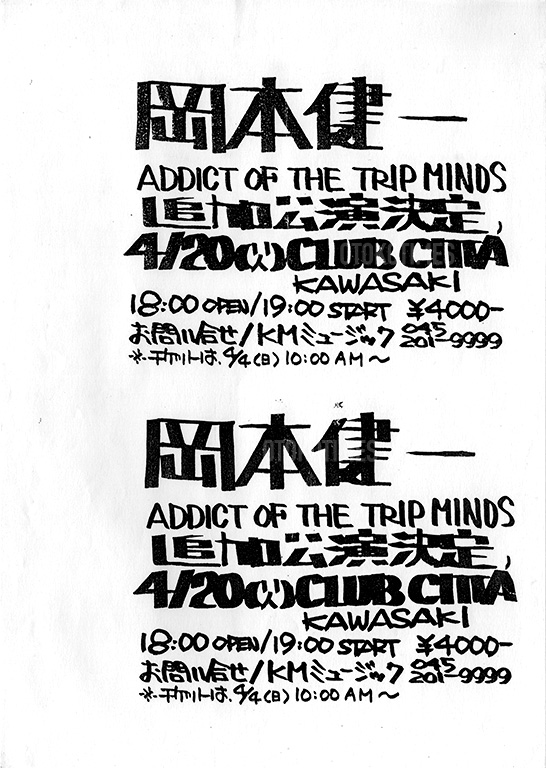 岡本健一
ADDICT OF THE TRIP MINDS
追加公演決定,
4/20(火)CLUB CITTA
KAWASAKI
18:00 OPEN/19:00 START ¥4000-
お問い合せ/KMミュージック 045 201-9999
※チケットは、4/4(日)10:00AM〜
岡本健一
ADDICT OF THE TRIP MINDS
追加公演決定,
4/20(火)CLUB CITTA
KAWASAKI
18:00 OPEN/19:00 START ¥4000-
お問い合せ/KMミュージック 045 201-9999
※チケットは、4/4(日)10:00AM〜